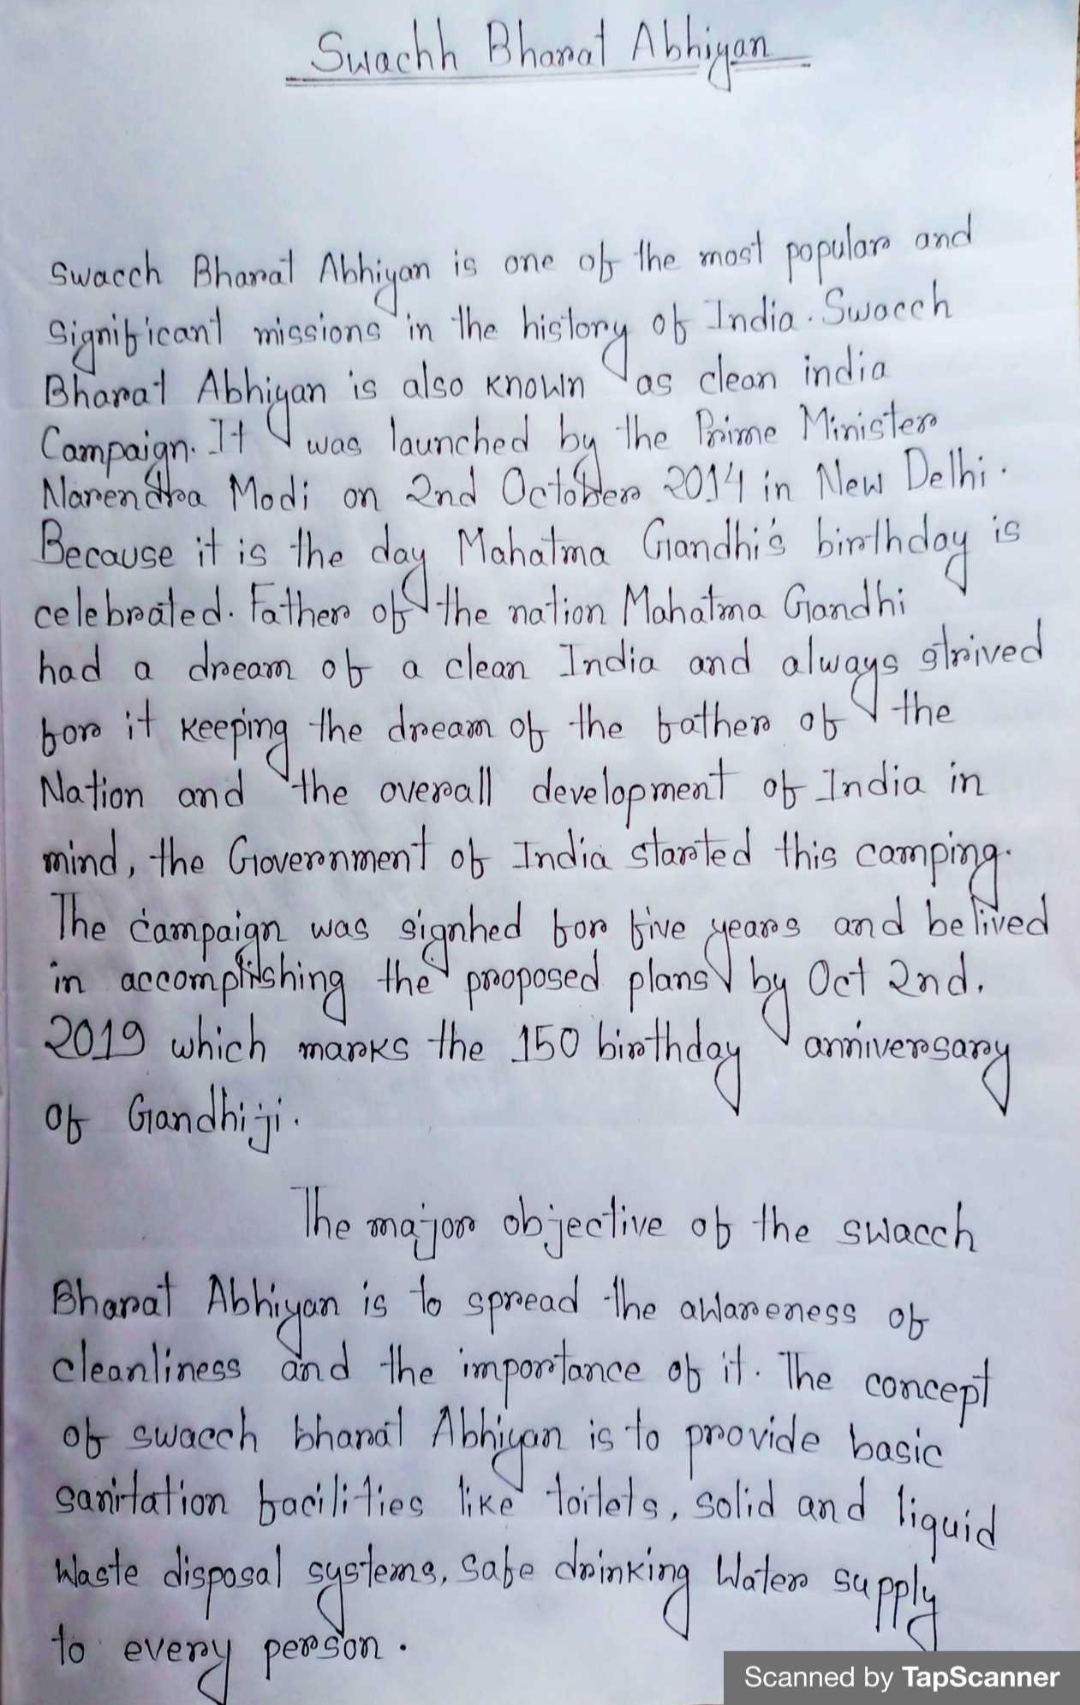 Swachh Bharat Abhiyan
Swacch Bharat Abhiyan is one of the most popular and
significant missions in the history of India. Swacch
Bharat Abhiyan is also known as clean india
Campaign. It was launched by the Prime Minister
Narendra Modi on 2nd October 2014 in New Delhi.
Because it is the day Mahatma Gandhi's birthday is
celebrated. Father of the nation Mahatma Gandhi
had a dream of a clean India and always strived
for it keeping the dream of the father of the
Nation and the overall development of India in
mind, the Government of India started this camping.
The campaign was signhed for five years and belived
in accomplishing the proposed plans by Oct 2nd,
2019 which marks the 150 birthday anniversary
of Gandhiji.
The major objective of the swacch
Bharat Abhiyan is to spread the awareness of
cleanliness and the importance of it. The concept
of swacch bharat Abhiyan is to provide basic
sanitation facilities like toilets, solid and liquid
waste disposal systems, safe drinking water supply
to every person.
Scanned by TapScanner